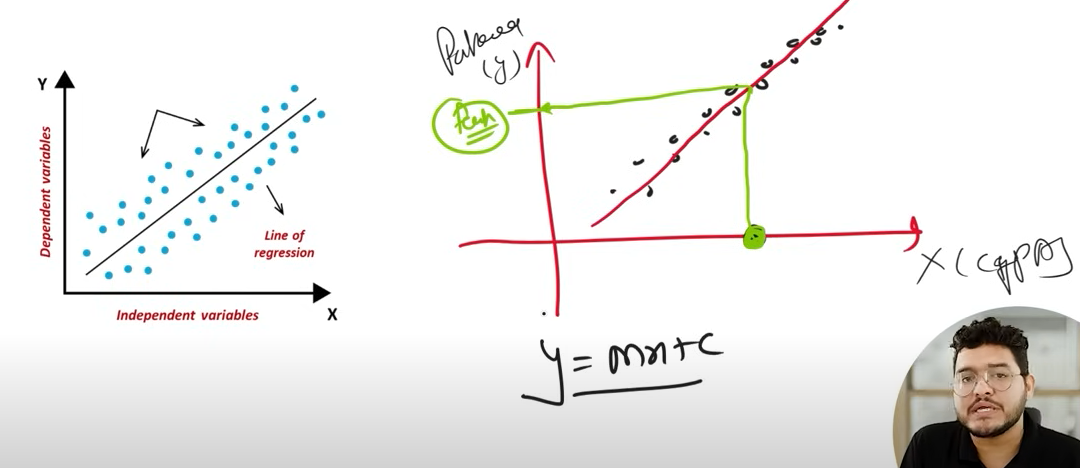 Y
Dependent variables
Line of
regression
Independent variables
X
(y)
X (CGPA)
y = mx + c